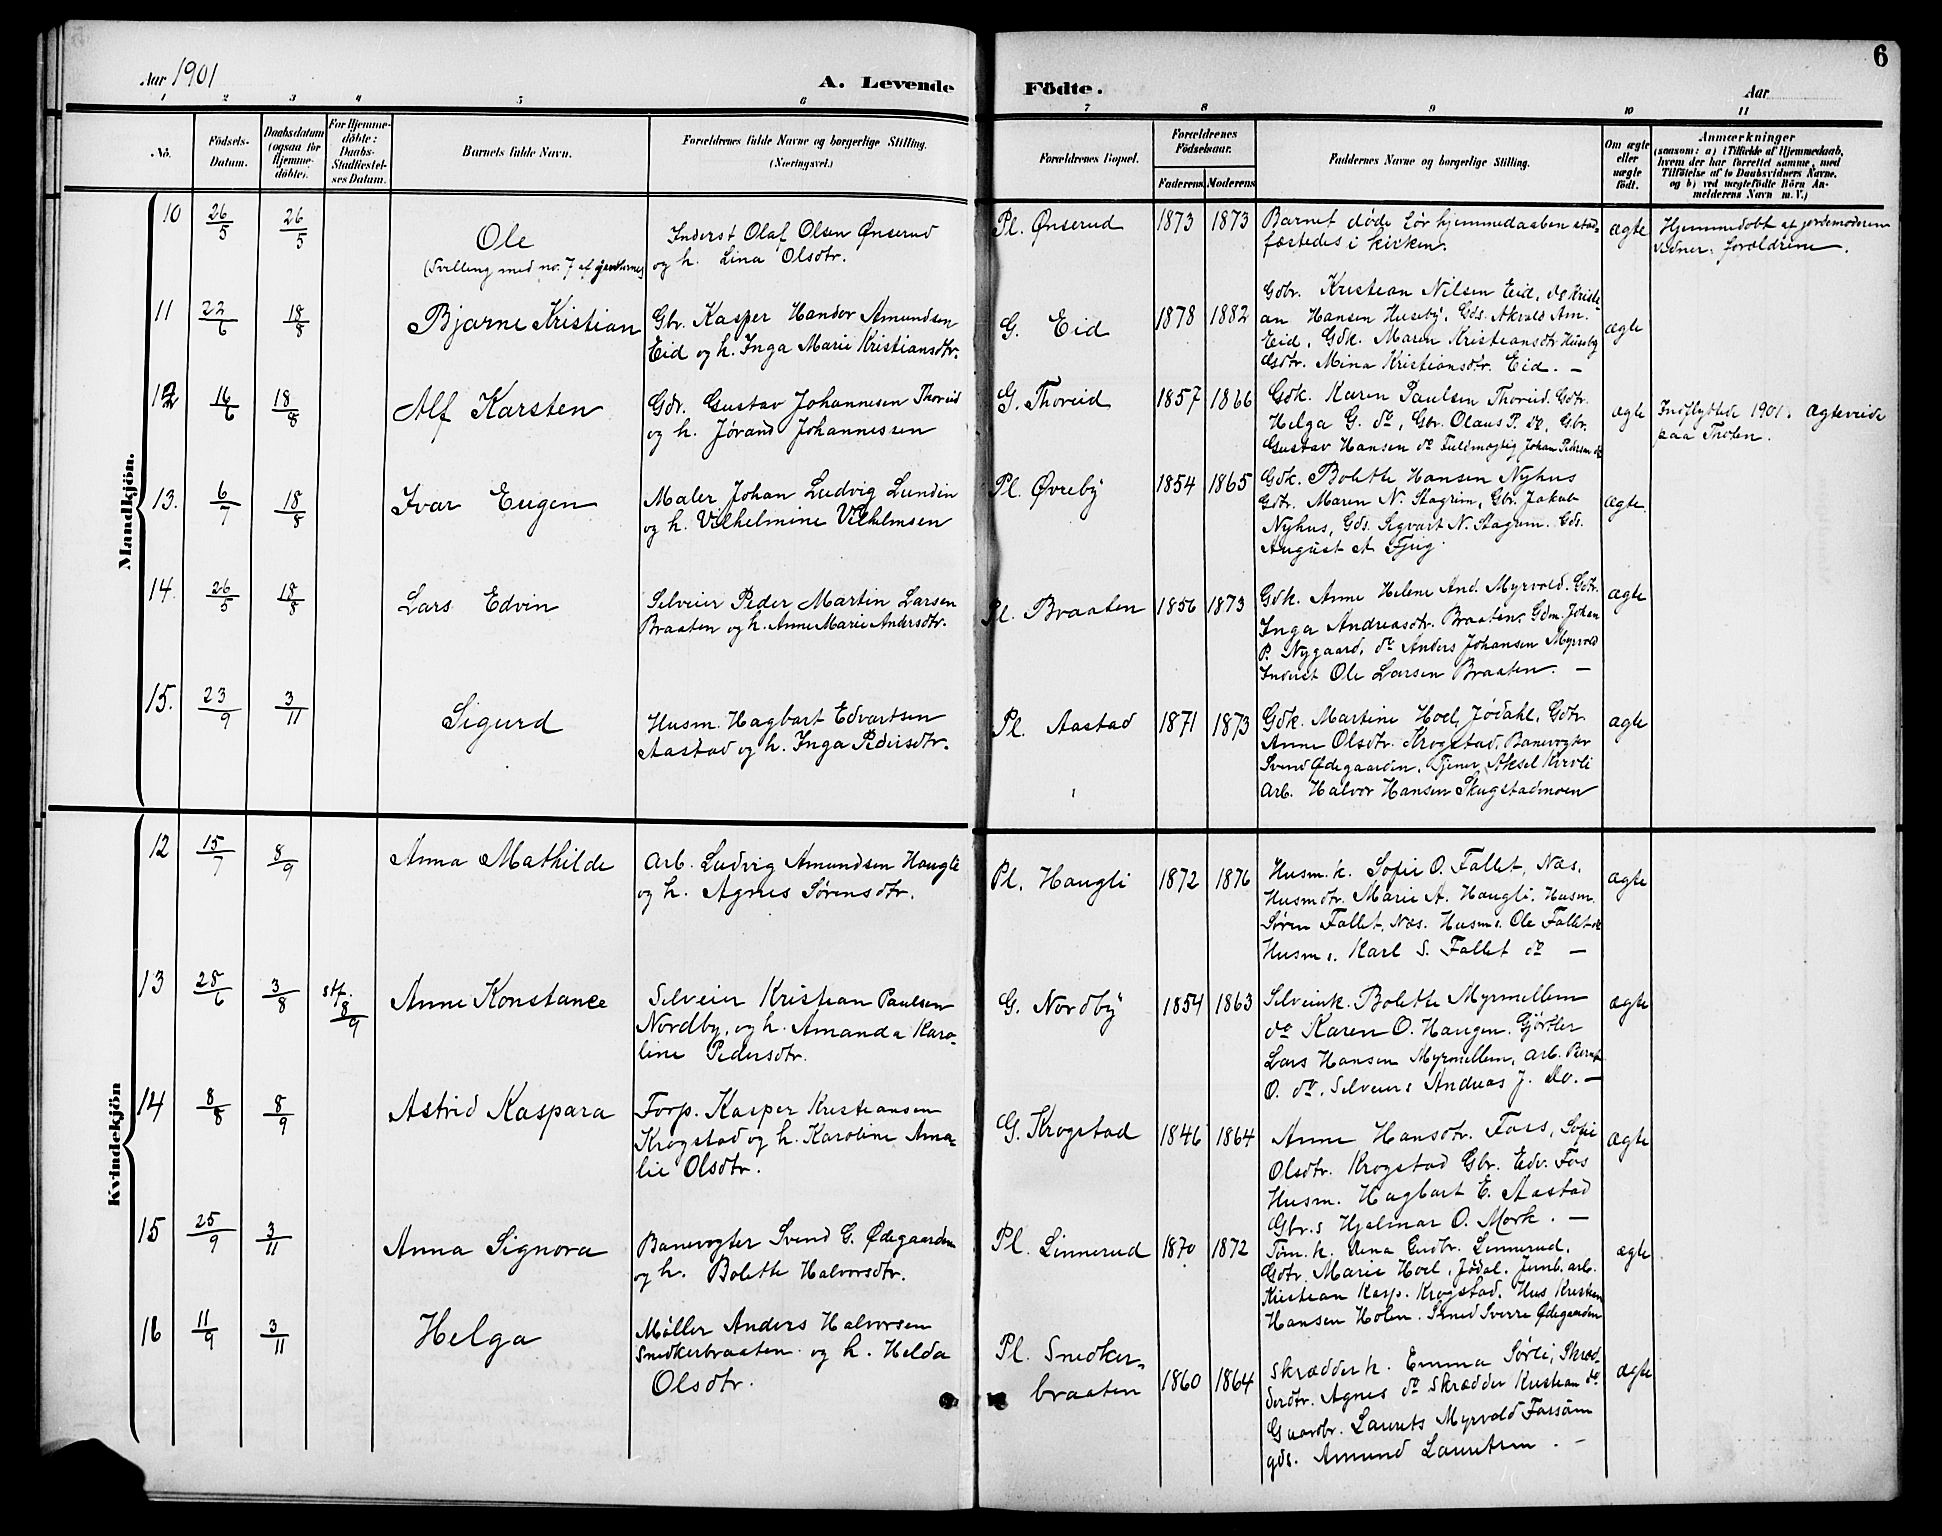 Aar 1901
A. Levende
Födte.
Aar
6
1 2 3 4 5 6 7 8 9 10 11
No. Födsels-Datum. Daabsdatum (ogsaa for Hjemme-döbte). For Hjemme-döbte: Daabs-Stadfæstel-ses Datum. Barnets fulde Navn. Forældrenes fulde Navne og borgerlige Stilling. (Næringsvei.) Forældrenes Bopæl. Forældrenes Födselsaar. Faderens Moderens Faddernes Navne og borgerlige Stilling. Om ægte eller uægte födt. Anmærkninger
(saasom: a) i Tilfælde af Hjemmedaab,
hvem der har forrettet samme, med
Tilföielse af to Daabsvidners Navne.
og b) ved uægtefödte Börn An-
melderens Navn m. V.)
Mandkjön.
10 26/5 26/5 Ole
(Tvilling med no. 7 af jenterne)
Inderst Olaf Olsen Ønserud
og h. Lina Olsdtr.
Pl. Ønserud 1873 1873
Barnet døde før hjemmedaaben stad-
fæstedes i kirken.
ægte
Hjemmedøbt af jordemoderen
vidner: forældrene.
11 22/6 18/8 Bjarne Kristian
Gbr. Kasper Handor Amundsen
Eid og h. Inga Marie Kristiansdtr.
G. Eid 1878 1882
Gdbr. Kristian Nilsen Eid, og Kristi-
an Hansen Huseby, Gds. Akvald Am.
Eid, Gdk. Maren Kristiansdtr Huseby
Gsdtr. Mina Kristiansdtr. Eid. —
ægte
12 16/6 18/8 Alf Karsten
Gdr. Gustav Johannesen Thoreid
og h. Jørand Johannessen
G. Thoreid 1857 1866
Gdk. Karen Paulsen Thoreid. Gdtr.
Helga G. do, Gbr. Olaus P. do, Gbr.
Gustav Hansen do Fuldmægtig Johan Pedersen do
ægte
Indflyttede 1901. Ægteviede
paa Thoten.
13. 6/7 18/8 Ivar Eugen
Maler Johan Ludvig Lundin
og h. Vilhelmine Vilhelmsen
Pl. Øvreby 1854 1865
Gdk. Bolette Hansen Nyhus
Gdtr. Maren N. Stagrim, Gbr. Jakob
Nyhus, Gds. Sigvart N. Stagrim. Gds.
August A. Fjug
ægte.
14. 26/5 18/8 Lars Edvin
Selveier Peder Martin Larsen
Braaten og h. Anne Marie Andersdtr.
Pl. Braaten 1856 1873
Gdk. Anne Helene And. Myrvold. Gdtr.
Inga Andreasdtr. Braaten, Gdm. Johan
P. Nygaard, do Anders Johansen Myrvold
Inderst Ole Larsen Braaten. —
ægte
15. 23/9 3/11 Sigurd
Husm. Hagbart Edvartsen
Aastad og h. Inga Pedersdtr.
Pl. Aastad 1871 1873
Gdk. Martine Hoel Jødahl, Gdtr
Anne Olsdtr. Krogstad, Banevogter
Svend Ødegaarden, Tjener Aksel Kirvli
Arb. Halvor Hansen Skugstadmoen
ægte
Kvindekjön
12 15/7 8/9 Anna Mathilde
Arb. Ludvig Amundsen Haugli
og h. Agnes Sørensdtr.
Pl. Haugli 1872 1876
Husm. k. Sofie O. Fallet, Næs.
Husmdtr. Marie A. Haugli. Husm.
Søren Fallet, Næs. Husm s. Ole Fallet do
Husm s. Karl S. Fallet do —
ægte
13 28/6 3/8 stf. 8/9 Anne Konstance
Selveier Kristian Paulsen
Nordby, og h. Amanda Karo-
line Pedersdtr.
G. Nordby 1854 1863
Selveierk. Bolette Myrmellem
do Karen O. Haugen. Gjørtler
Lars Hansen Myrmellem, Arb. Bernt
O. do. Selveier s Andreas J. Do. —
ægte
14 8/8 8/9 Astrid Kaspara
Forp. Kasper Kristiansen
Krogstad og h. Karoline Ama-
lie Olsdtr.
G. Krogstad 1846 1864
Anne Hansdtr. Fors, Sofie
Olsdtr. Krogstad Gbr. Edv. Fors
Husm. Hagbart E. Aastad
Gbr. s Hjalmar O. Mork. —
ægte
15 25/9 3/11 Anna Signora
Banevogter Svend G. Ødegaarden
og h. Bolette Halvorsdtr.
Pl. Linnerud 1870 1872
Tøm. k. Lina Gudbr. Linnerud.
Gdtr. Marie Hoel, Jødal. Jernb. arb.
Kristian Kasp. Krogstad. Hus Kristian
Hansen Holen. Smed Sverre Ødegaarden
ægte
16 11/9 3/11 Helga
Møller Anders Halvorsen
Snedkerbraaten og h. Helda
Olsdtr.
Pl. Snedker-
braaten 1860 1864
Skrædder k. Emma Sørli, Skræd-
derdtr. Agnes do Skrædder Kristian do
Gaardbr. Laurits Myrvold Forsøm
gds. Amund Lauritsen. —
ægte